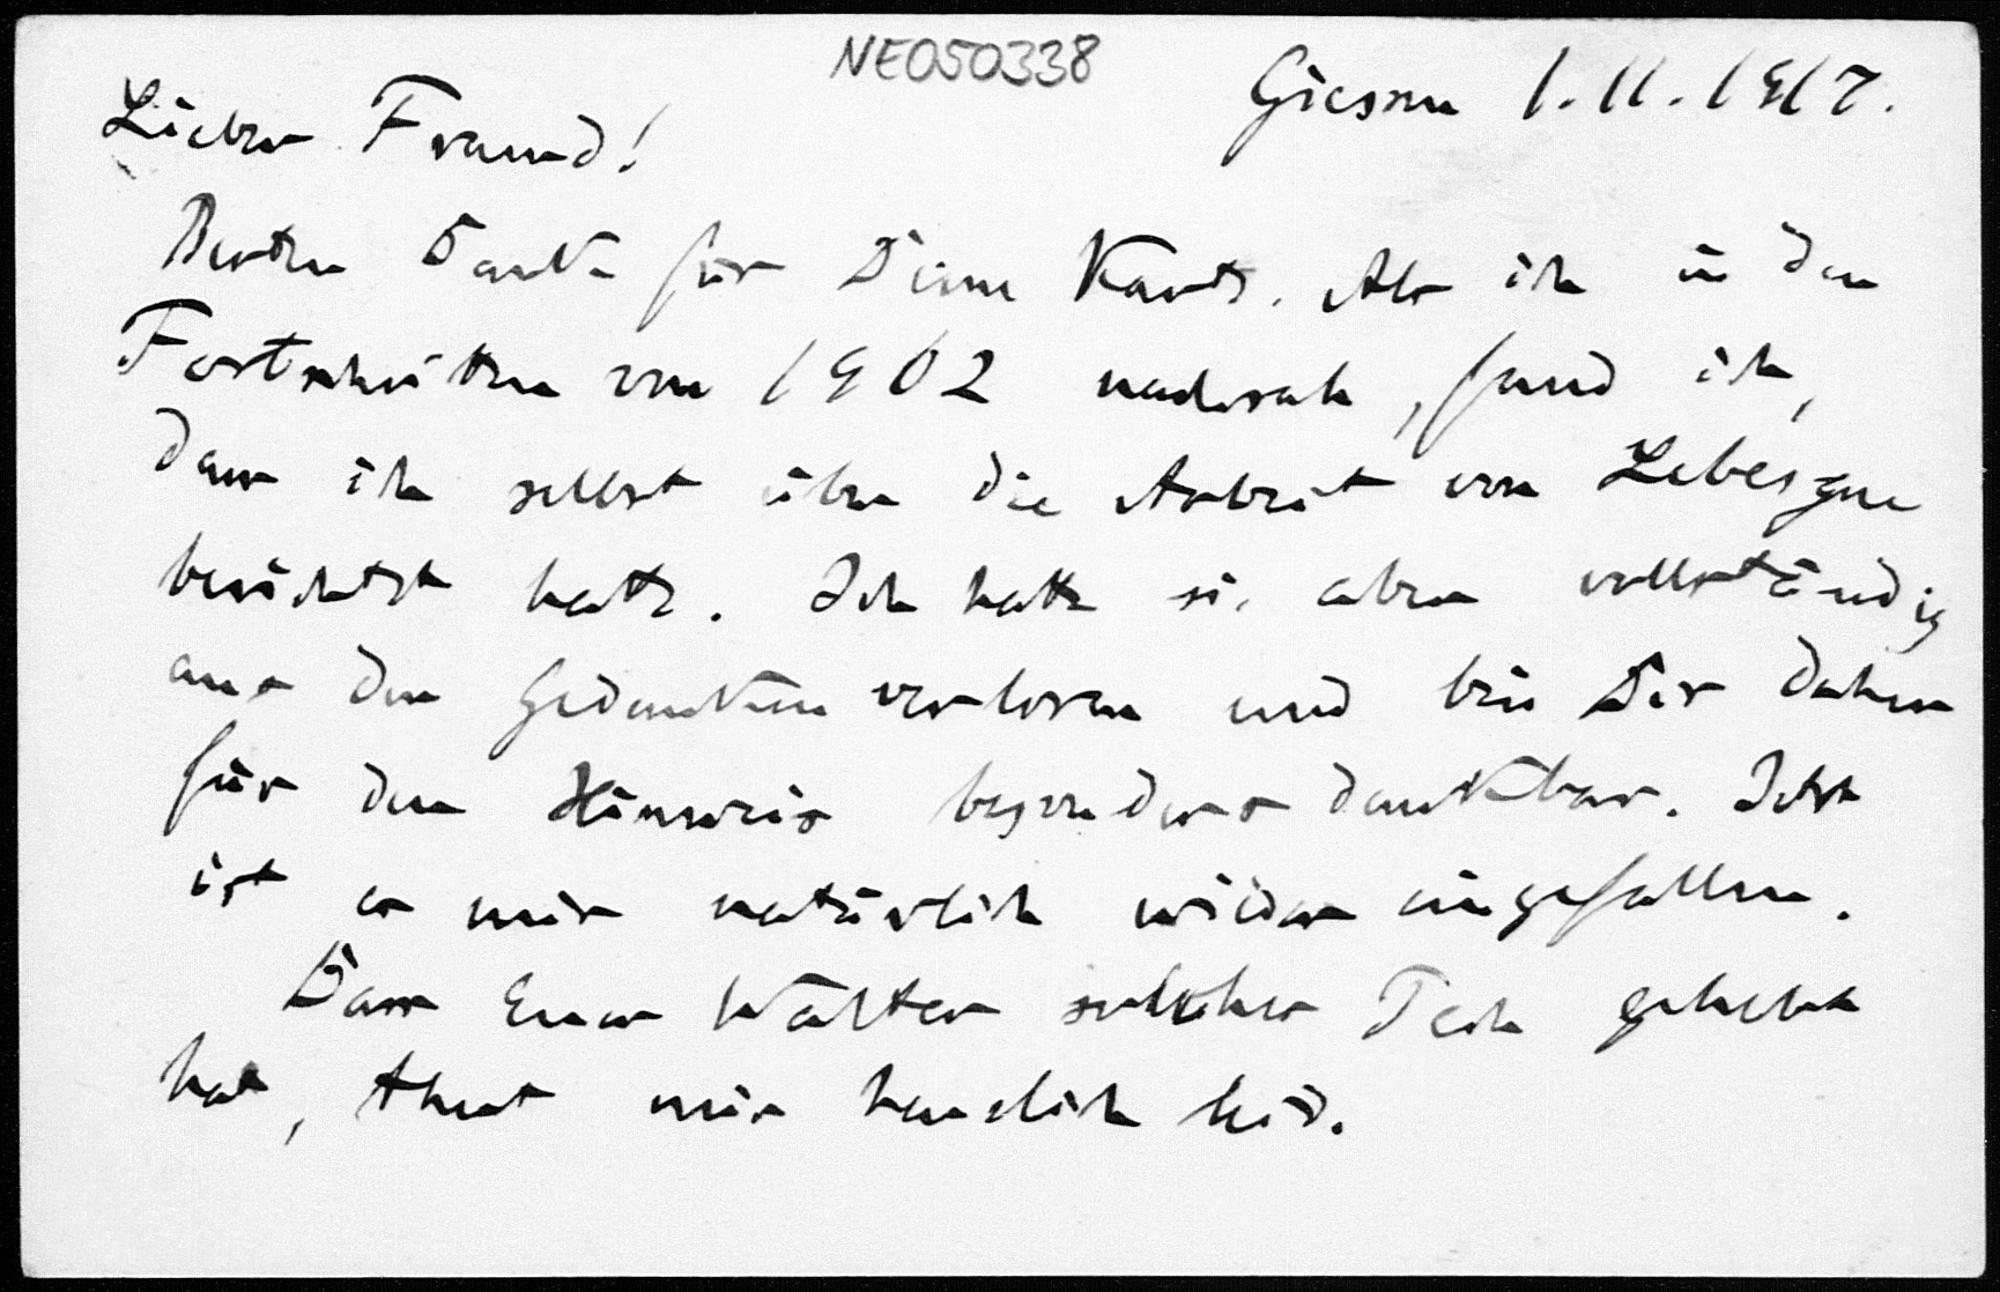 NE050338
Giessen 1.11.1917.
Lieber Freund!
Besten Dank für Deine Karte. Als ich in den
Fortschritten von 1902 nachsah, fand ich,
dass ich selbst über die Arbeit von Lebesgue
berichtet hatte. Ich hatte sie aber vollständig
aus den Gedanken verloren und bin Dir daher
für den Hinweis besonders dankbar. Jetzt
ist es mir natürlich wieder eingefallen.
Dass Euer Walter solches Pech gehabt
hat, thut mir herzlich leid.